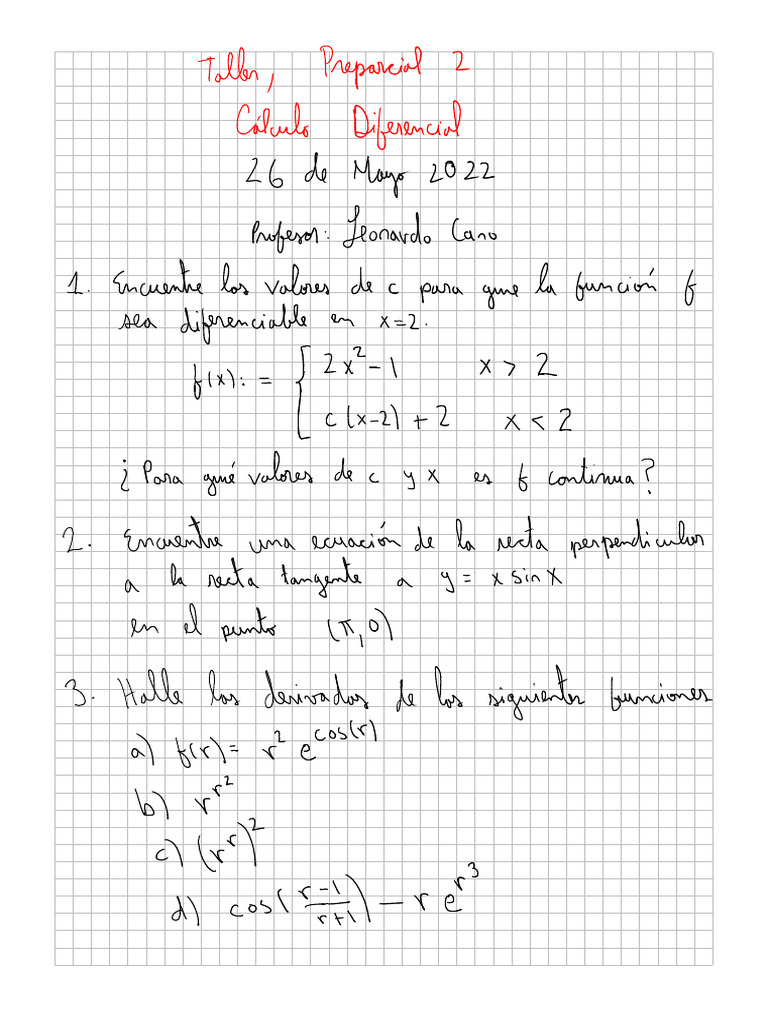 Taller, Preparcial 2
Cálculo Diferencial
26 de Mayo 2022
Profesor: Leonardo Cano
1. Encuentre los valores de c para que la función f
sea diferenciable en x=2.
f(x) := { 2x² - 1 x > 2
c(x-2) + 2 x < 2
¿Para qué valores de c y x es f continua?
2. Encuentre una ecuación de la recta perpendicular
a la recta tangente a y = x sin x
en el punto (π, 0)
3. Halle las derivadas de las siguientes funciones
a) f(r) = r² e^cos(r)
b) r^r²
c) (r^r)²
d) cos((r-1)/(r+1)) - r e^r³